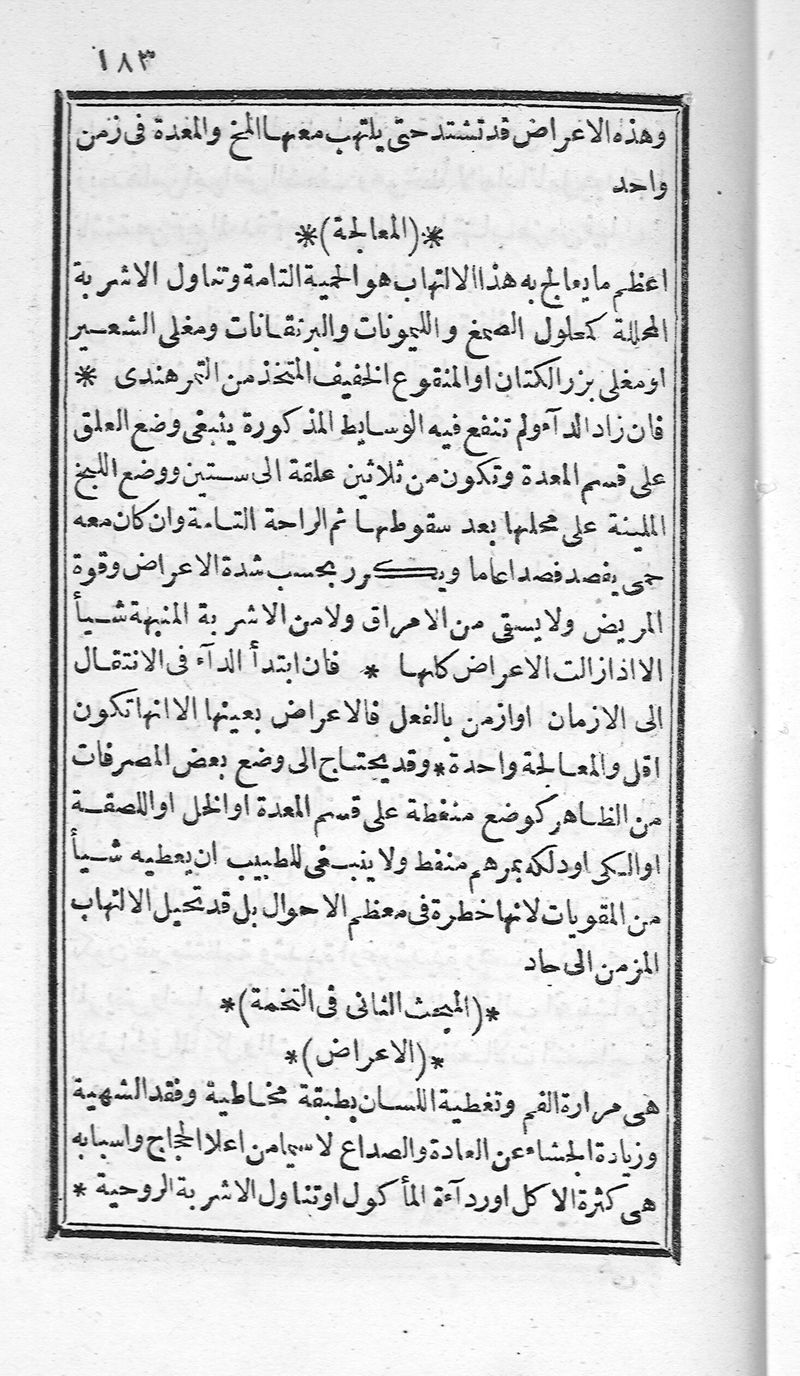 ١٨٣
وهذه الاعراض قد تشتد حتى يلتهب معها المخ والمعدة فى زمن
واحد
*(المعالجة)*
اعظم ما يعالج به هذا الالتهاب هو الحمية التامة وتناول الاشربة
المحللة كمحلول الصمغ والليمونات والبرتقانات ومغلى الشعير
او مغلى بزر الكتان او المنقوع الخفيف المتخذ من التمر هندى *
فان زاد الدآء ولم تنفع فيه الوسايط المذكورة ينبغى وضع العلق
على قسم المعدة وتكون من ثلاثين علقة الى ستين ووضع اللبخ
الملينة على محلها بعد سقوطها ثم الراحة التامة وان كان معه
حمى يفصد فصدا عاما ويكرر بحسب شدة الاعراض وقوة
المريض ولا يسقى من الامراق ولا من الاشربة المنبهة شيأ
الا اذا زالت الاعراض كلها * فان ابتدأ الدآء فى الانتقال
الى الازمان او ازمن بالفعل فالاعراض بعينها الا انها تكون
اقل والمعالجة واحدة * وقد يحتاج الى وضع بعض المصرفات
من الظاهر كوضع منفطة على قسم المعدة او الخل او اللصقة
او الكى او دلكه بمرهم منفط ولا ينبغى للطبيب ان يعطيه شيأ
من المقويات لانها خطرة فى معظم الاحوال بل قد تحيل الالتهاب
المزمن الى حاد
*(المبحث الثانى فى التخمة)*
*(الاعراض)*
هى مرارة الفم وتغطية اللسان بطبقة مخاطية وفقد الشهية
وزيادة الجشاء عن العادة والصداع لا سيما من اعلا الحجاج واسبابه
هى كثرة الاكل او ردآءة المأكول او تناول الاشربة الروحية *